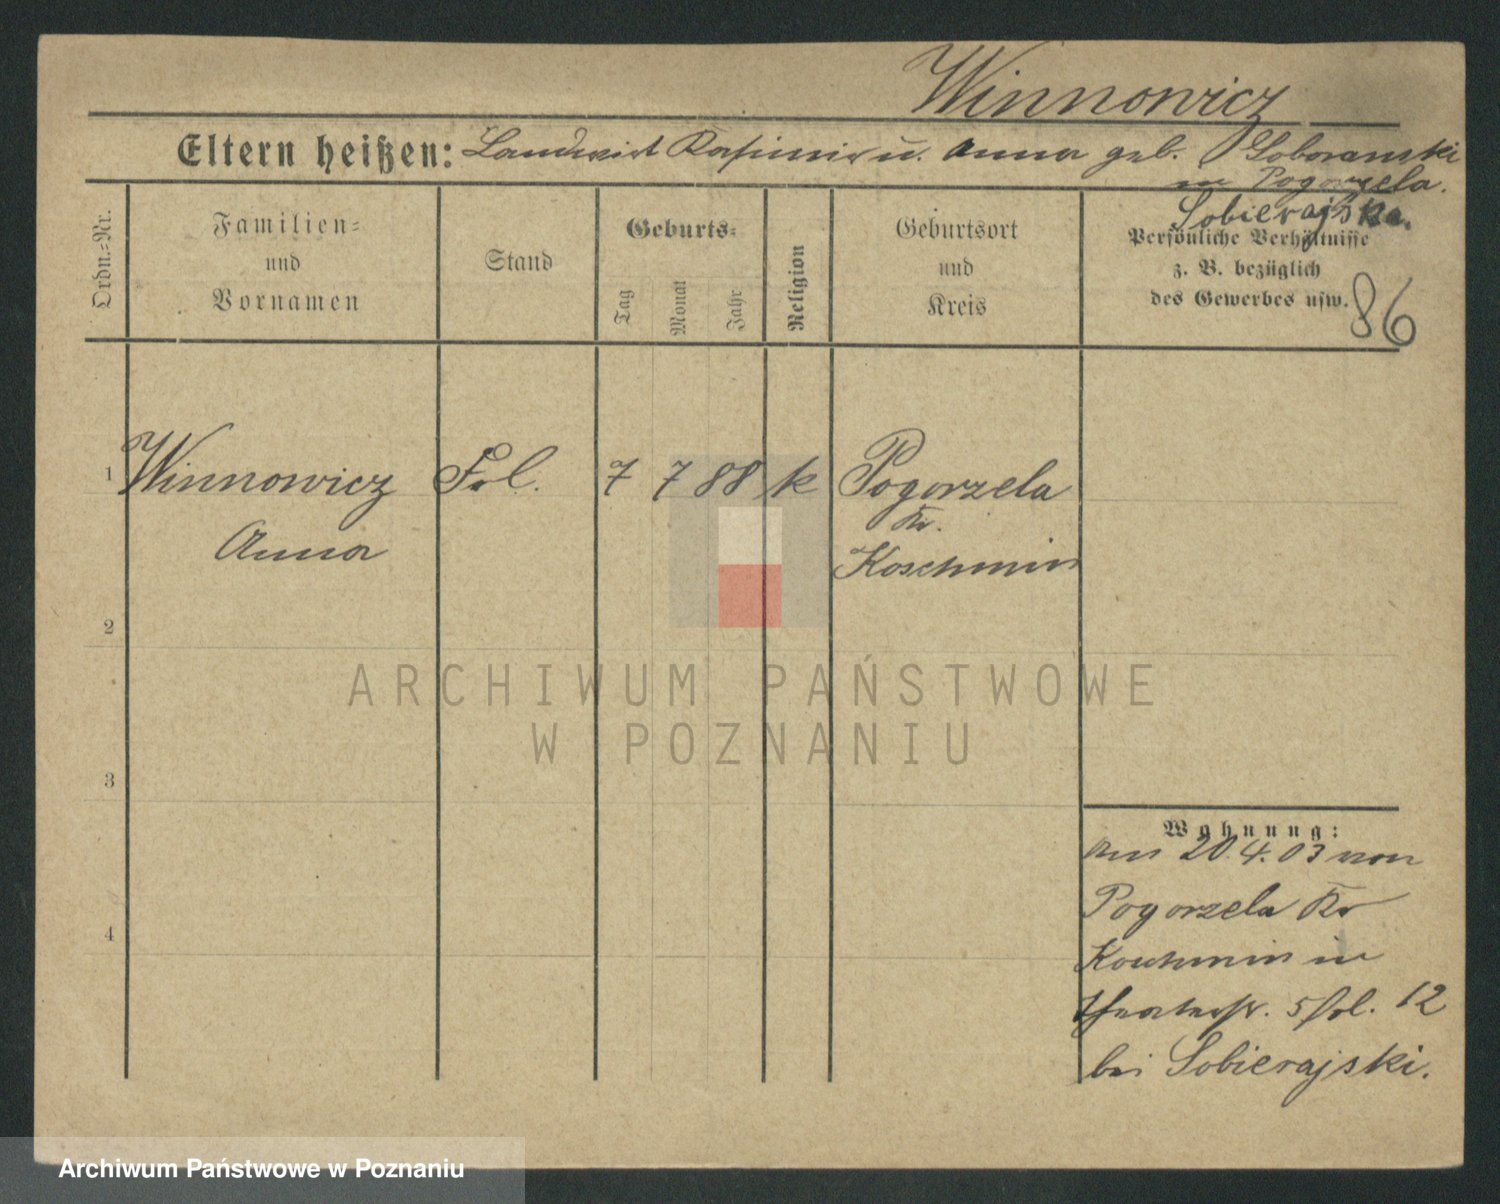 Winnowicz
Eltern heißen: Landwirt Kasimir u. Anna geb. Soboranski
in Pogorzela.
Sobierajska.
Ordn.-Nr.
Familien-
und
Vornamen
Stand
Geburts-
Tag
Monat
Jahr
Religion
Geburtsort
und
Kreis
Persönliche Verhältnisse
z. B. bezüglich
des Gewerbes usw.
86
1 Winnowicz Frl. 7 7 88 k Pogorzela
Kr.
Anna Koschmin
2
3
4
Wohnung:
am 20.4.03 von
Pogorzela Kr
Koschmin in
Theaterstr. 5 12
bei Sobierajski.
ARCHIWUM PAŃSTWOWE
W POZNANIU
Archiwum Państwowe w Poznaniu